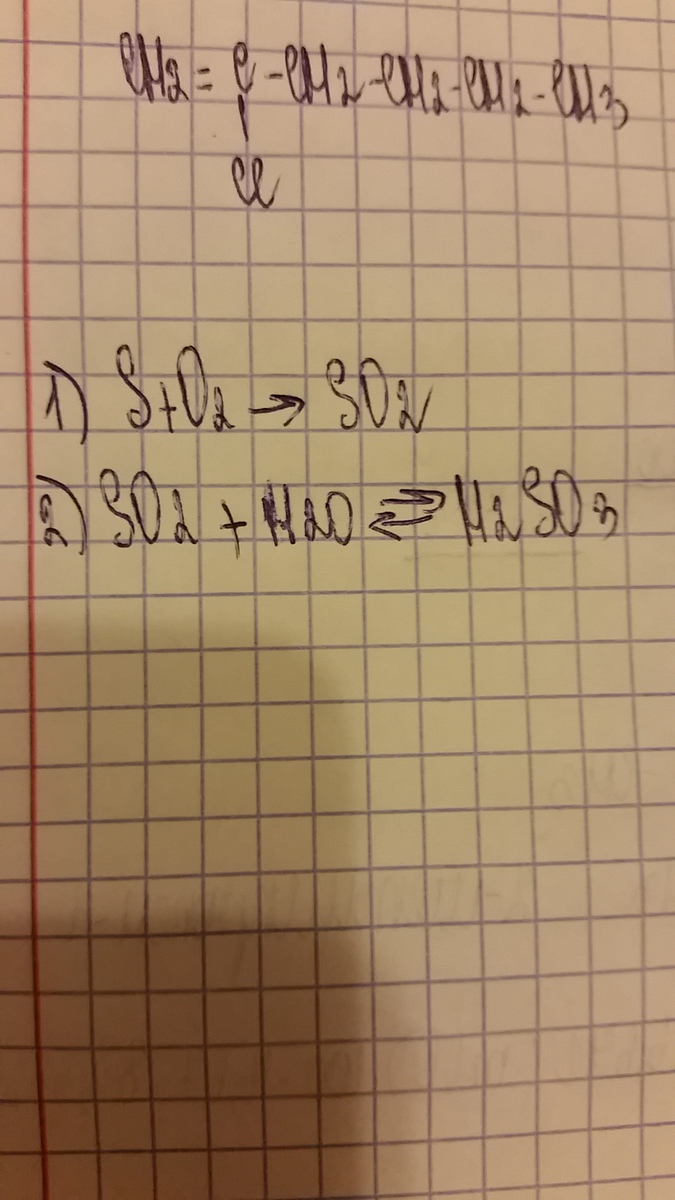 CH2 = C - CH2 - CH2 - CH2 - CH3
|
Cl
1) S + O2 → SO2
2) SO2 + H2O ⇄ H2SO3